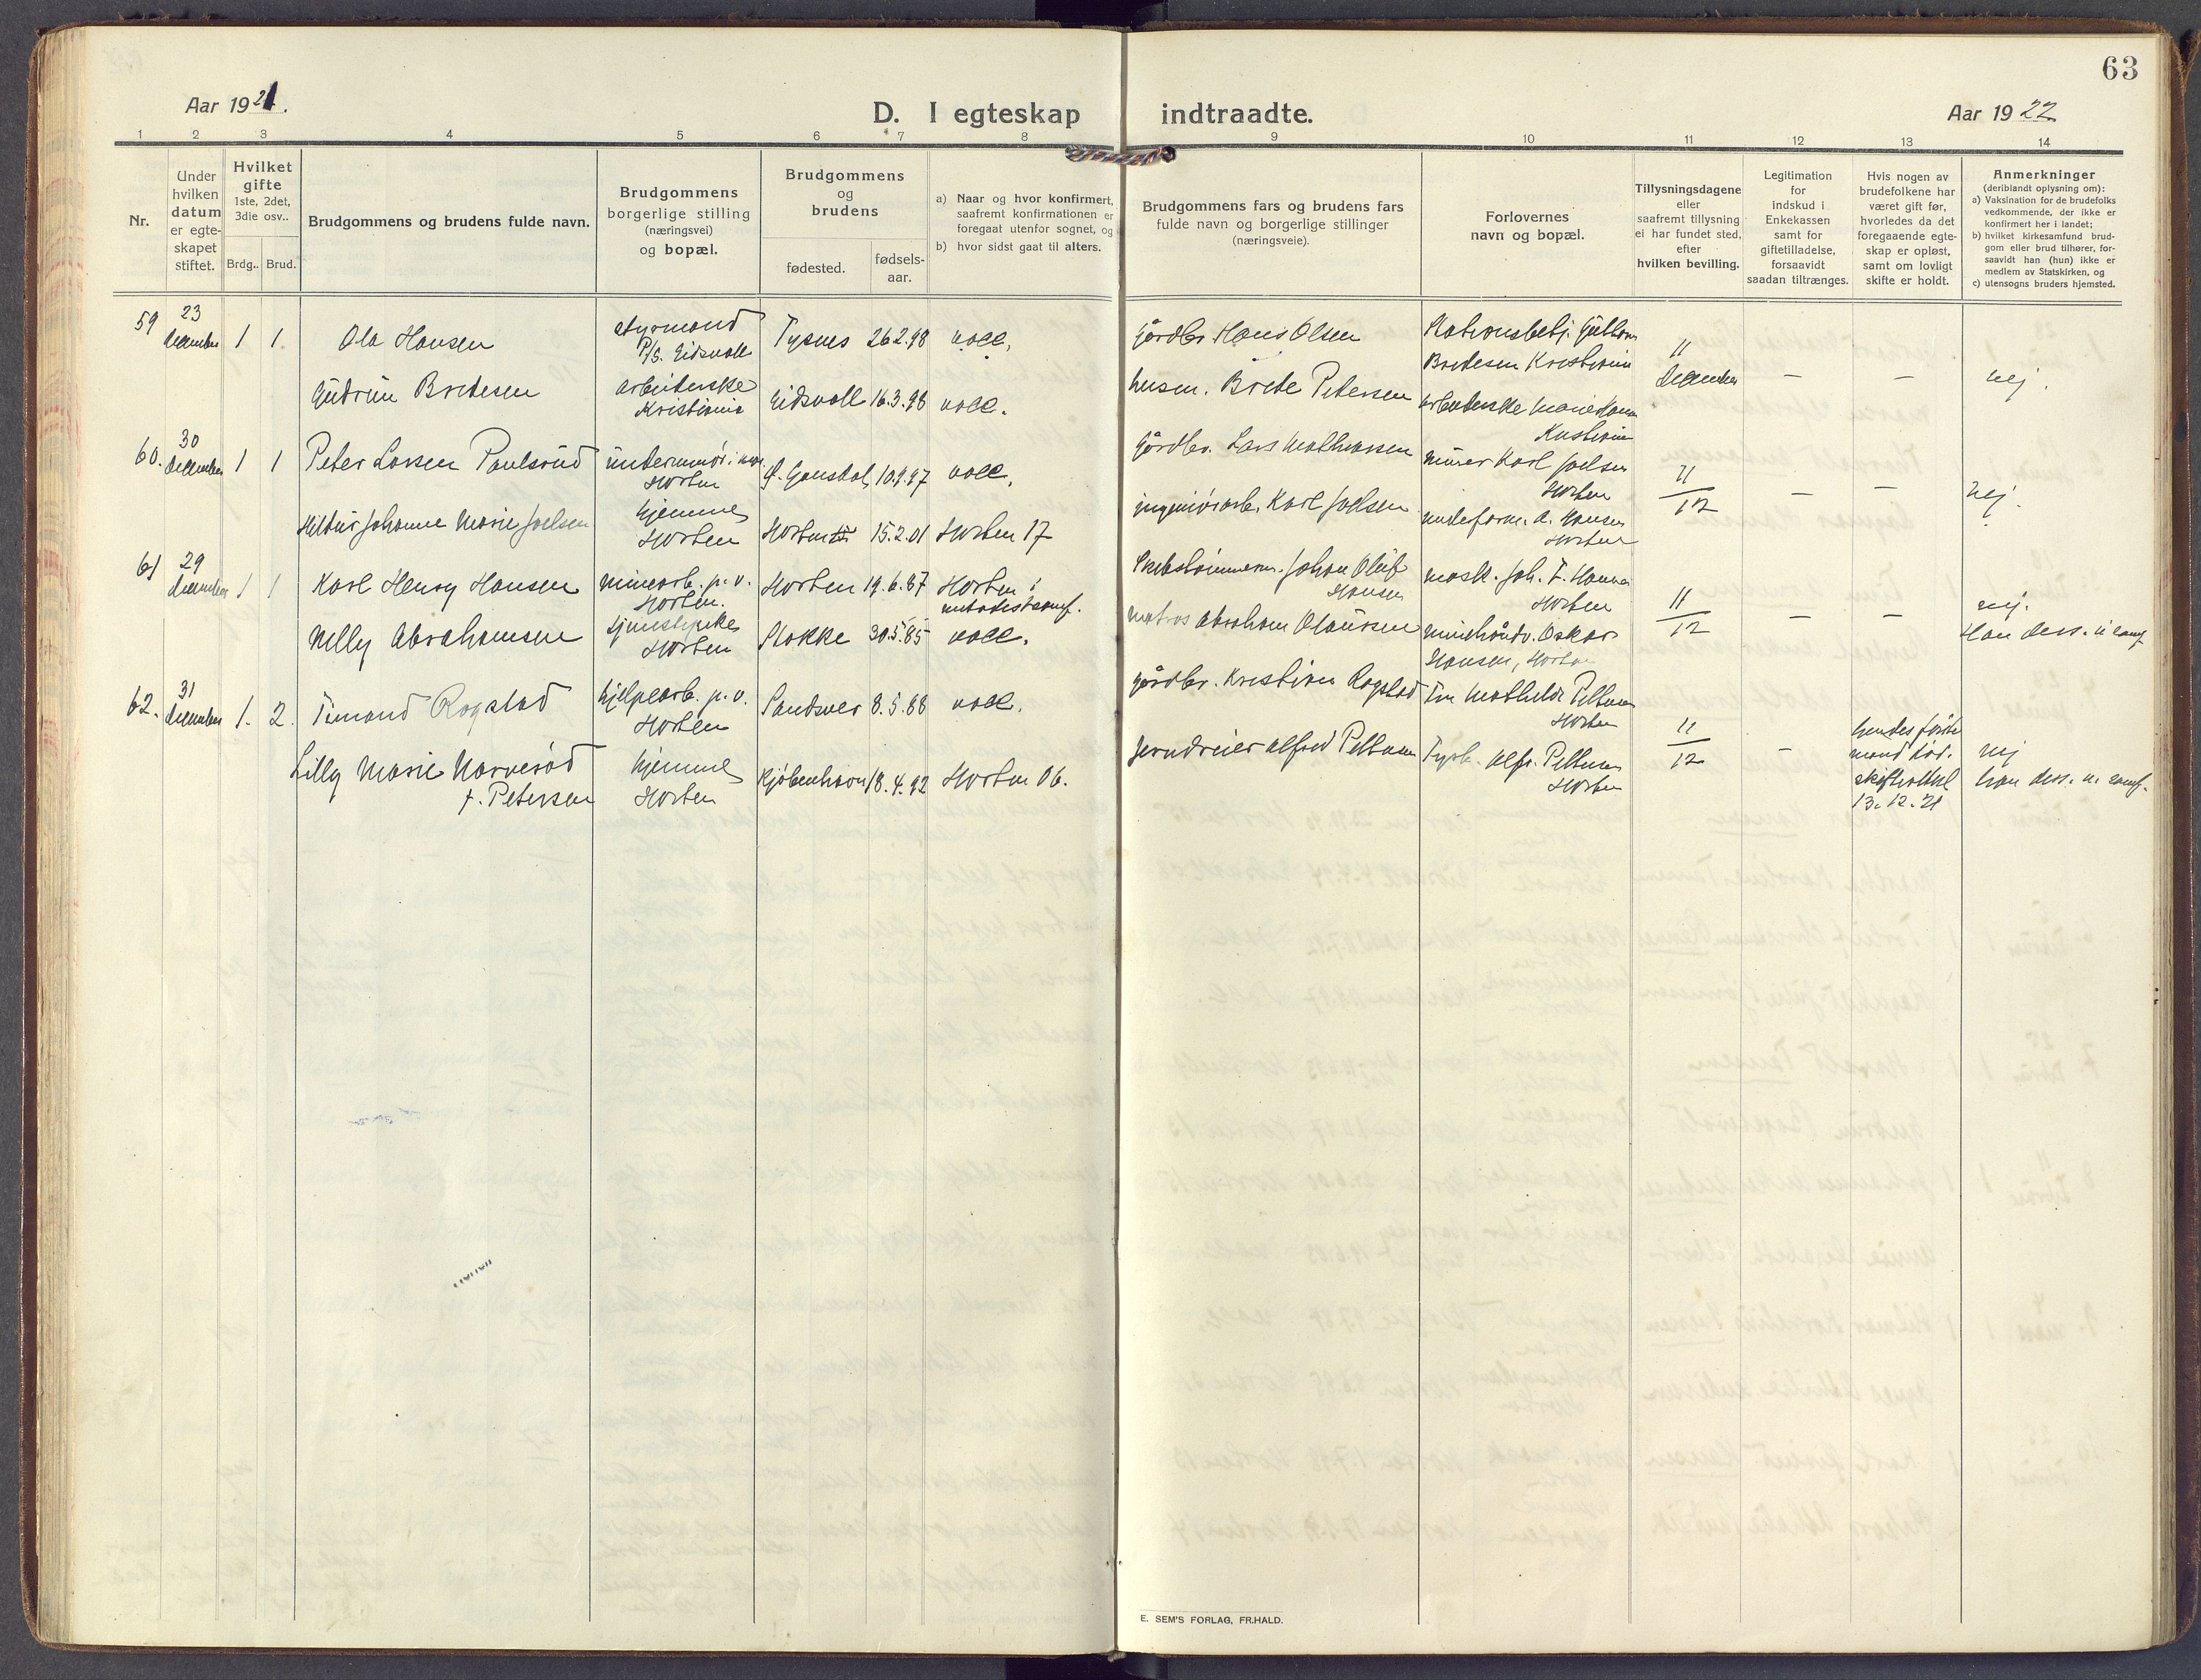 63
Aar 1921.
D. I egteskap indtraadte.
Aar 1922
1 2 3 4 5 6 7 8 9 10 11 12 13 14
Nr.
Under
hvilken
datum
er egte-
skapet
stiftet.
Hvilket
gifte
1ste, 2det,
3die osv..
Brdg.. Brud.
Brudgommens og brudens fulde navn.
Brudgommens
borgerlige stilling
(næringsvei)
og bopæl.
Brudgommens
og
brudens
fødested.
fødsels-
aar.
a) Naar og hvor konfirmert,
saafremt konfirmationen er
foregaat utenfor sognet, og
b) hvor sidst gaat til alters.
Brudgommens fars og brudens fars
fulde navn og borgerlige stillinger
(næringsveie).
Forlovernes
navn og bopæl.
Tillysningsdagene
eller
saafremt tillysning
ei har fundet sted,
efter
hvilken bevilling.
Legitimation
for
indskud i
Enkekassen
samt for
giftetilladelse,
forsaavidt
saadan tiltrænges.
Hvis nogen av
brudefolkene har
været gift før,
hvorledes da det
foregaaende egte-
skap er opløst,
samt om lovligt
skifte er holdt.
Anmerkninger
(deriblandt oplysning om):
a) Vaksination for de brudefolks
vedkommende, der ikke er
konfirmert her i landet;
b) hvilket kirkesamfund brud-
gom eller brud tilhører, for-
saavidt han (hun) ikke er
medlem av Statskirken, og
c) utensogns bruders hjemsted.
59
23
december
1 1
Ola Hansen
styrmand
P/S. Eidsvold
Tysnes 26.2.98
gårdbr. Hans Olsen
Bredesen Kristiania
11
december
— —
nej.
Gudrun Bredesen
arbeiderske
Kristiania
Eidsvoll 16.3.98
husm. Brede Petersen
Kristiania
60.
30
december
1 1
Peter Larsen Paulsrud
Horten
10.9.97
gårdbr. Lars Mathiassen
murer Karl Joelsen
Horten
11
12
— —
nej.
Johanne Marie Joelsen
hjemme
Horten
Horten 15.2.01 Horten 17
Karl Joelsen
A. Hansen
Horten
61
29
december
1 1
Karl Henry Hansen
minearb. p. v.
Horten.
Horten 19.6.87 Horten i
metodistsamf.
Johan Oluf
Hansen
mask. Joh. F. Hansen
Horten
11
12
— —
nej.
Han diss. u samf
Nelly Abrahamsen
Horten
Stokke 30.5.85
matros Abraham Olaussen
Oskar
Hansen, Horten
62.
31
december
1. 2.
Timand Rogstad
hjelpearb. p. v.
Horten
Sandsver 8.5.88
gårdbr. Kristian Rogstad
Horten
11
12
—
hendes første
mand død.
skifteattest
13.12.21
nej
han diss. u. samf.
Lilly Marie Narverød
f. Petersen
hjemme
Horten
Kjøbenhavn 18.4.92 Horten 06.
jerndreier Alfred Pettersen
Alfr. Pettersen
Horten
E. SEM'S FORLAG, FR.HALD.